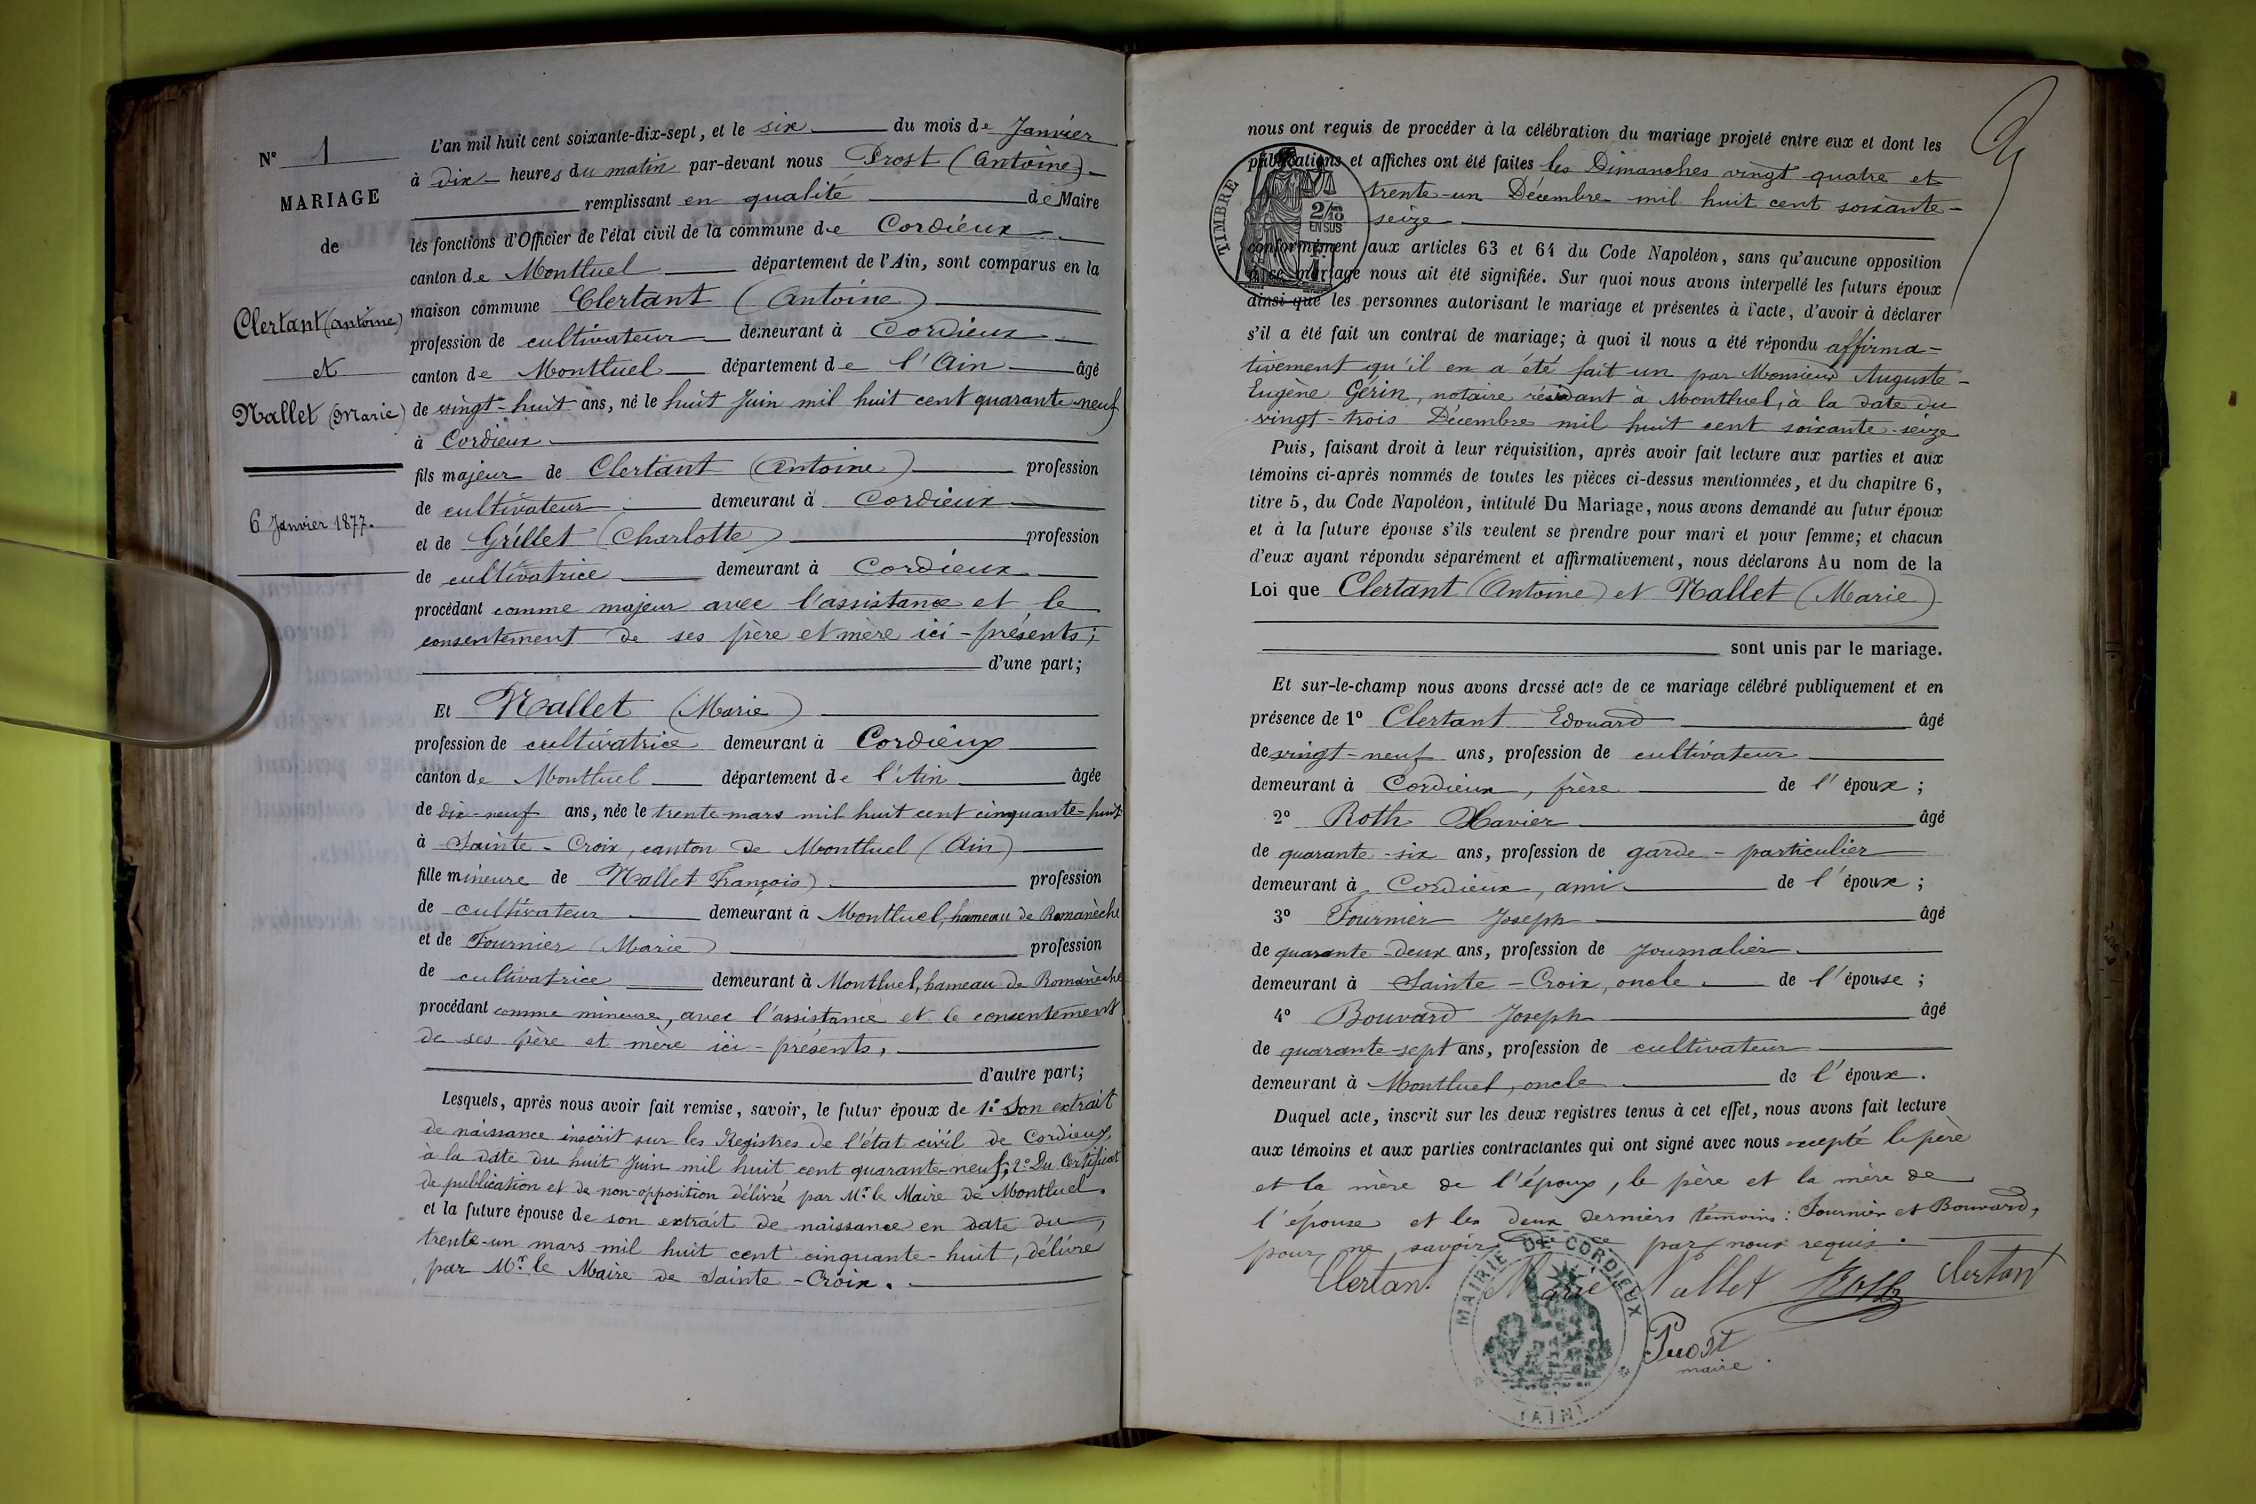 N° 1
MARIAGE
de
Clertant (Antoine)
et
Nallet (Marie)
6 Janvier 1877.
L'an mil huit cent soixante-dix-sept, et le six du mois de Janvier
à dix heures du matin par-devant nous Prost (Antoine)
remplissant en qualité de Maire
les fonctions d'Officier de l'état civil de la commune de Cordieux
canton de Montluel département de l'Ain, sont comparus en la
maison commune Clertant (Antoine)
profession de cultivateur demeurant à Cordieux
canton de Montluel département de l'Ain âgé
de vingt-huit ans, né le huit Juin mil huit cent quarante-neuf
à Cordieux
fils majeur de Clertant (Antoine) profession
de cultivateur demeurant à Cordieux
et de Grillet (Charlotte) profession
de cultivatrice demeurant à Cordieux
procédant comme majeur avec l'assistance et le
consentement de ses père et mère ici-présents;
d'une part;
Et Nallet (Marie)
profession de cultivatrice demeurant à Cordieux
canton de Montluel département de l'Ain âgée
de dix-neuf ans, née le trente mars mil huit cent cinquante-huit
à Sainte-Croix, canton de Montluel (Ain)
fille mineure de Nallet François) profession
de cultivateur demeurant à Montluel, hameau de Romanèche
et de Fournier (Marie) profession
de cultivatrice demeurant à Montluel, hameau de Romanèche
procédant comme mineure, avec l'assistance et le consentement
de ses père et mère ici-présents,
d'autre part;
Lesquels, après nous avoir fait remise, savoir, le futur époux de 1° Son extrait
de naissance inscrit sur les Registres de l'état civil de Cordieux,
à la date du huit Juin mil huit cent quarante-neuf; 2° Du Certificat
de publication et de non-opposition délivré par Mr. le Maire de Montluel.
et la future épouse de son extrait de naissance en date du
trente-un mars mil huit cent cinquante-huit, délivré
par Mr. le Maire de Sainte-Croix.
nous ont requis de procéder à la célébration du mariage projeté entre eux et dont les
publications et affiches ont été faites les Dimanches vingt quatre et
trente-un Décembre mil huit cent soixante-
seize
conformément aux articles 63 et 64 du Code Napoléon, sans qu'aucune opposition
à ce mariage nous ait été signifiée. Sur quoi nous avons interpellé les futurs époux
ainsi que les personnes autorisant le mariage et présentes à l'acte, d'avoir à déclarer
s'il a été fait un contrat de mariage; à quoi il nous a été répondu affirma-
tivement qu'il en a été fait un par Monsieur Auguste-
Eugène Gérin, notaire résidant à Montluel, à la date du
vingt-trois Décembre mil huit cent soixante-seize
Puis, faisant droit à leur réquisition, après avoir fait lecture aux parties et aux
témoins ci-après nommés de toutes les pièces ci-dessus mentionnées, et du chapitre 6,
titre 5, du Code Napoléon, intitulé Du Mariage, nous avons demandé au futur époux
et à la future épouse s'ils veulent se prendre pour mari et pour femme; et chacun
d'eux ayant répondu séparément et affirmativement, nous déclarons Au nom de la
Loi que Clertant (Antoine) et Nallet (Marie)
sont unis par le mariage.
Et sur-le-champ nous avons dressé acte de ce mariage célébré publiquement et en
présence de 1° Clertant Edouard âgé
de vingt-neuf ans, profession de cultivateur
demeurant à Cordieux, frère de l'époux;
2° Roth Xavier âgé
de quarante-six ans, profession de garde-particulier
demeurant à Cordieux, ami de l'époux;
3° Fournier Joseph âgé
de quarante-deux ans, profession de Journalier
demeurant à Sainte-Croix, oncle de l'épouse;
4° Bouvard Joseph âgé
de quarante-sept ans, profession de cultivateur
demeurant à Montluel, oncle de l'époux.
Duquel acte, inscrit sur les deux registres tenus à cet effet, nous avons fait lecture
aux témoins et aux parties contractantes qui ont signé avec nous excepté le père
et la mère de l'époux, le père et la mère de
l'épouse et les deux derniers témoins: Fournier et Bouvard,
pour ne savoir de ce par nous requis.
Clertant Marie Nallet Roth Clertant
Prost
maire
TIMBRE
2/10
EN SUS
MAIRIE DE CORDIEUX
(AIN)